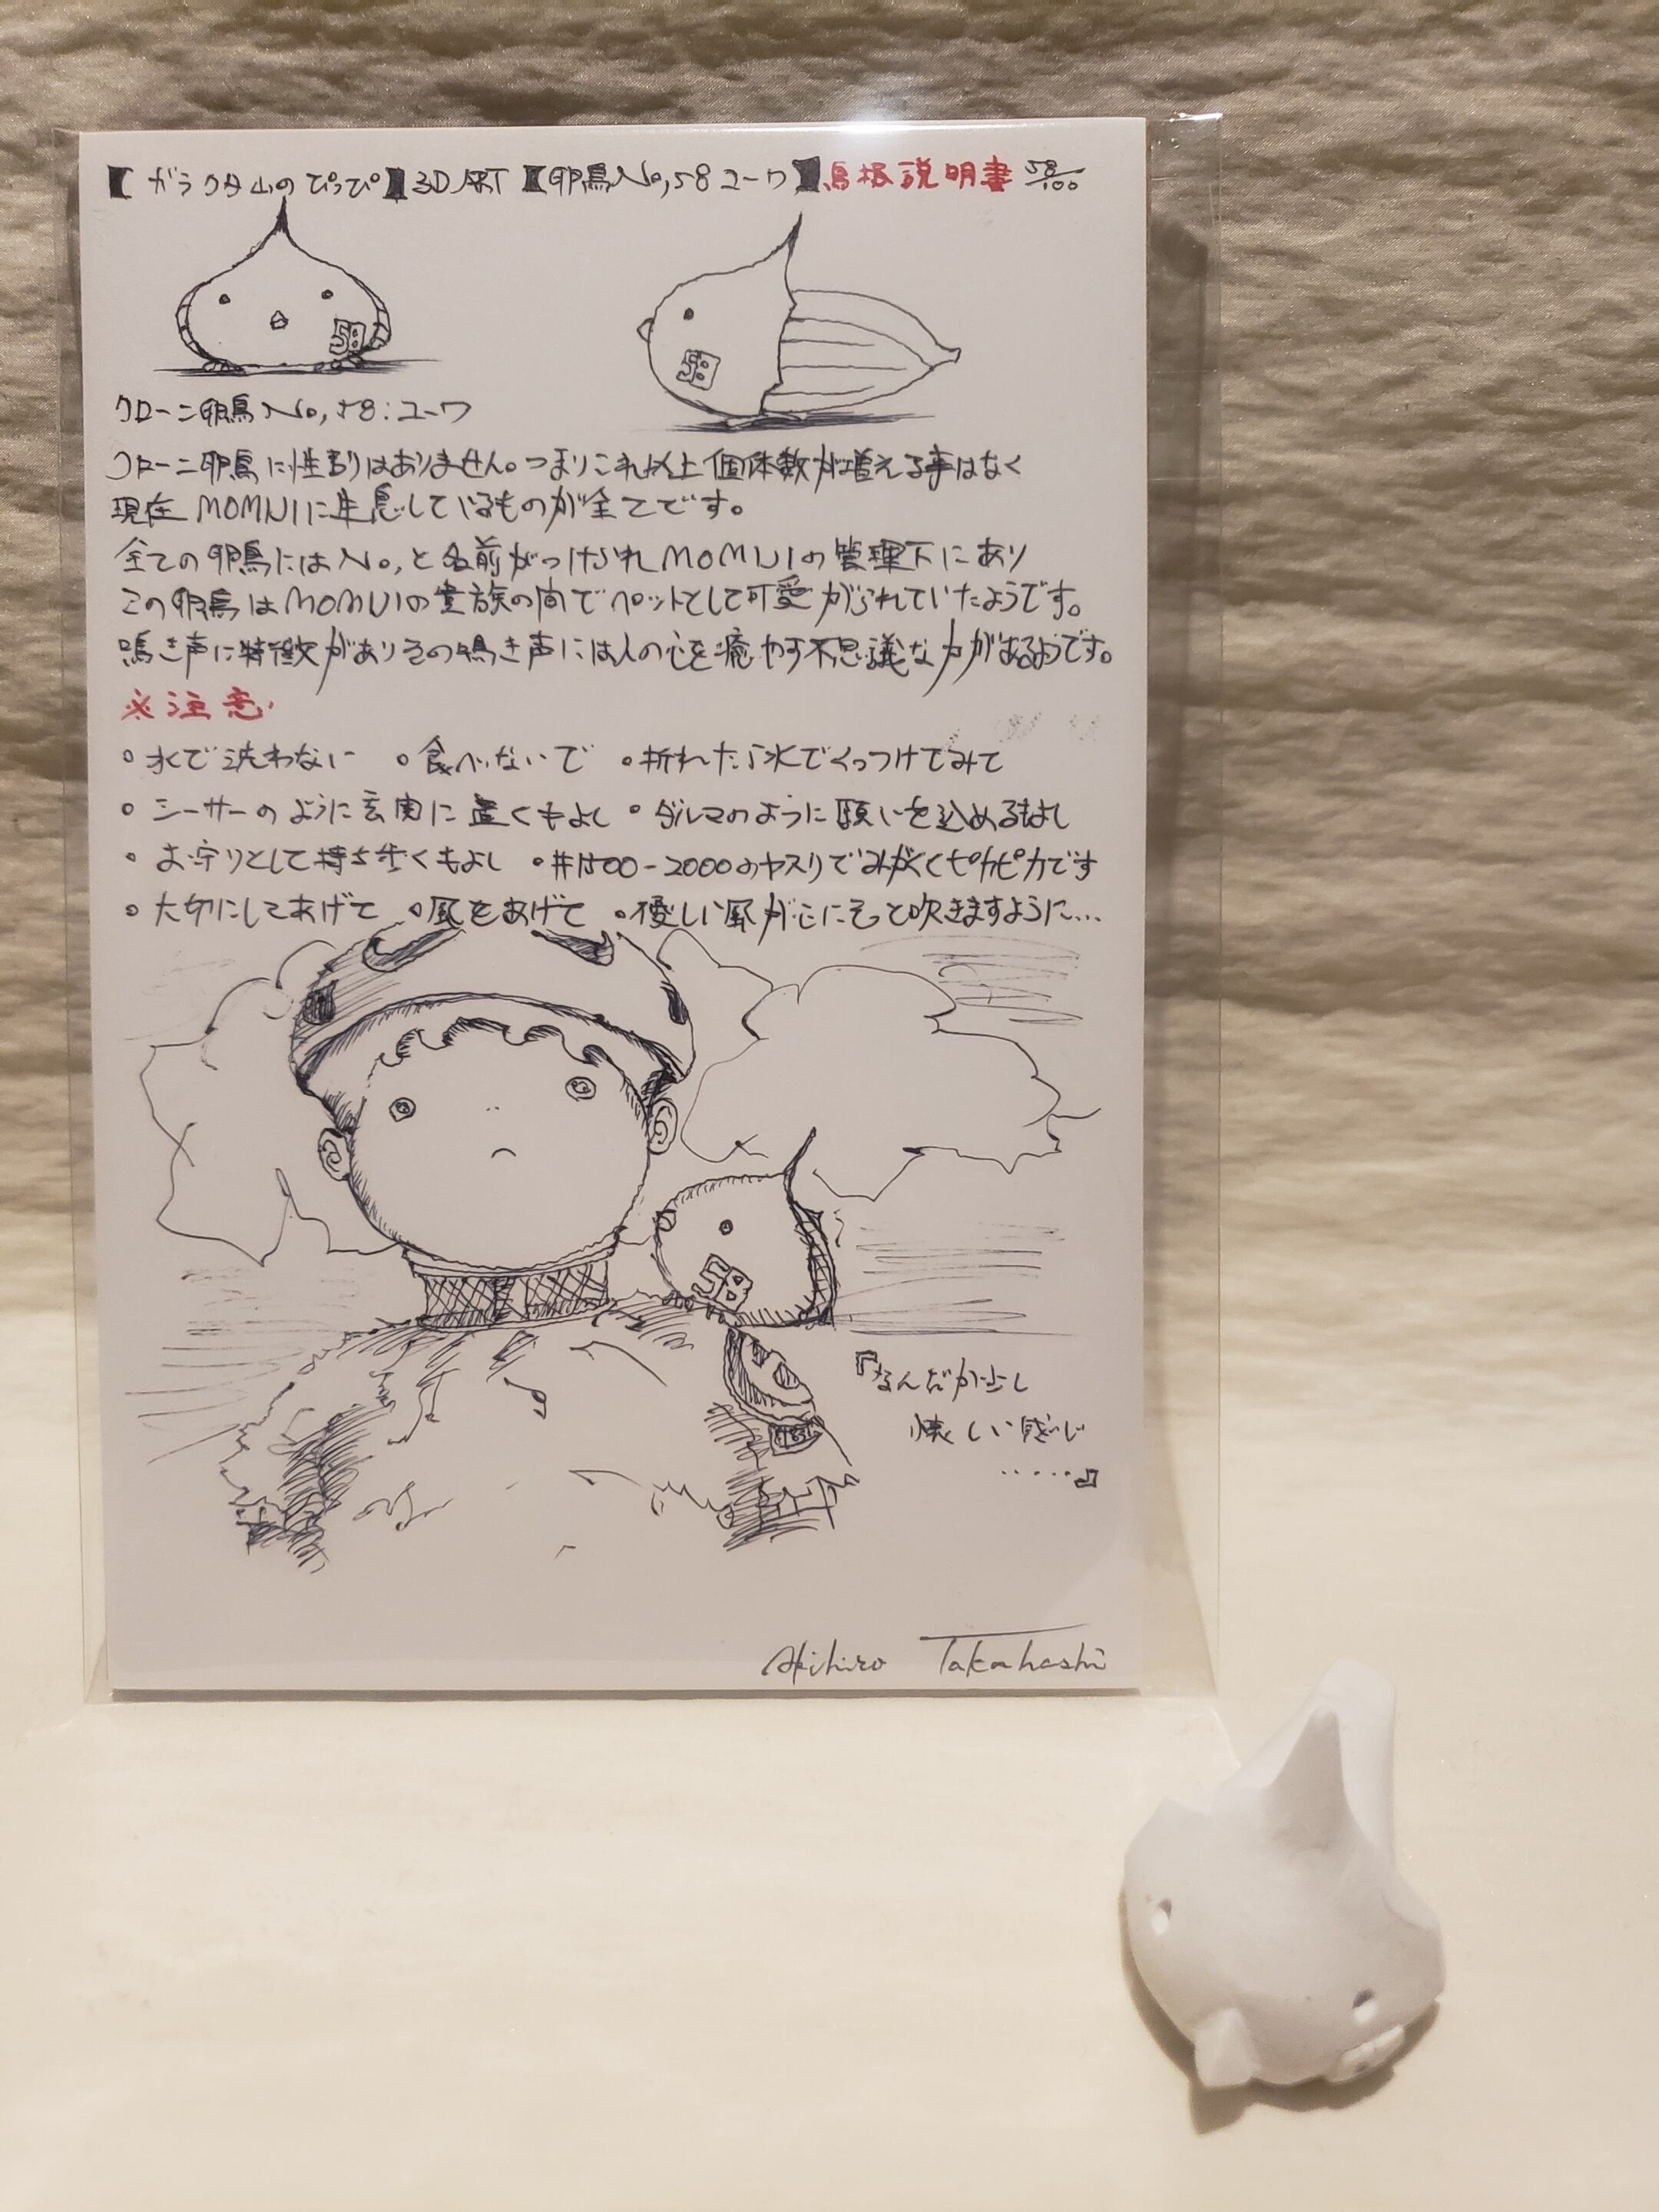 【ガラクタ山のぴっぴ】3D ART【卵鳥No,58ユーワ】鳥極説明書 58/100
58
58
クローン卵鳥No,58:ユーワ
クローン卵鳥に性別はありません。つまりこれ以上個体数が増える事はなく
現在MOMUIに生息しているものが全てです。
全ての卵鳥にはNo,と名前がつけられMOMUIの管理下にあり
この卵鳥はMOMUIの貴族の間でペットとして可愛がられていたようです。
鳴き声に特徴がありその鳴き声には人の心を癒やす不思議な力があるようです。
※注意
・水で洗わない ・食べないで ・折れたら水でくっつけてみて
・シーサーのように玄関に置くもよし ・ダルマのように願いを込めるもよし
・お守りとして持ち歩くもよし ・#1500-2000のヤスリでみがくとピカピカです
・大切にしてあげて ・風をあげて ・優しい風が心にそっと吹きますように...
58
『なんだか少し
懐しい感じ
.....』
Akihiro Takahashi